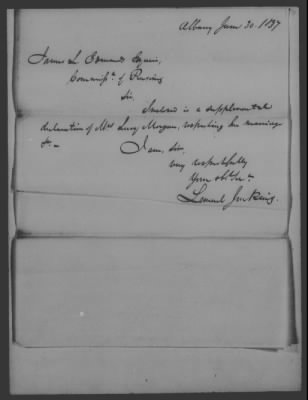 Albany June 30. 1837
James L Edwards Esquire,
Commissr. of Pensions
Sir.
Inclosed is a supplemental
declaration of Mrs Lucy Morgan, respecting her marriage
&c -
I am, Sir.
very respectfully
Your obt. Sert.
Lemuel Jenkins.